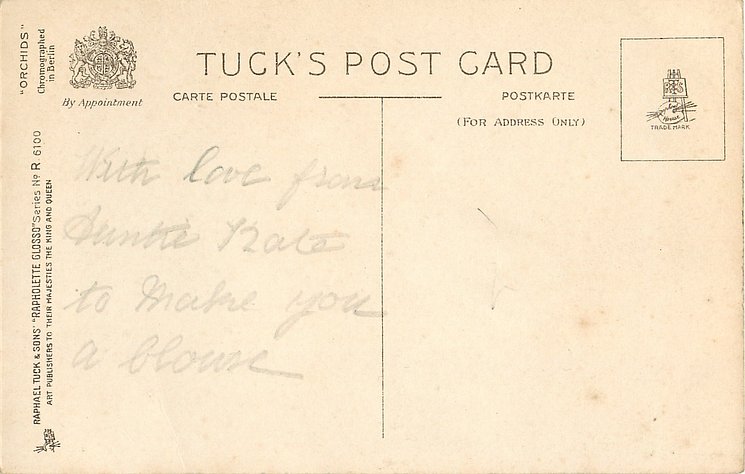 "ORCHIDS"
Chromographed
in Berlin
By Appointment
TUCK'S POST CARD
CARTE POSTALE
POSTKARTE
(FOR ADDRESS ONLY)
TRADE MARK
RAPHAEL TUCK & SONS' "RAPHOLETTE GLOSSO" Series No R 6100
ART PUBLISHERS TO THEIR MAJESTIES THE KING AND QUEEN
With love from
Auntie Kate
to make you
a blouse